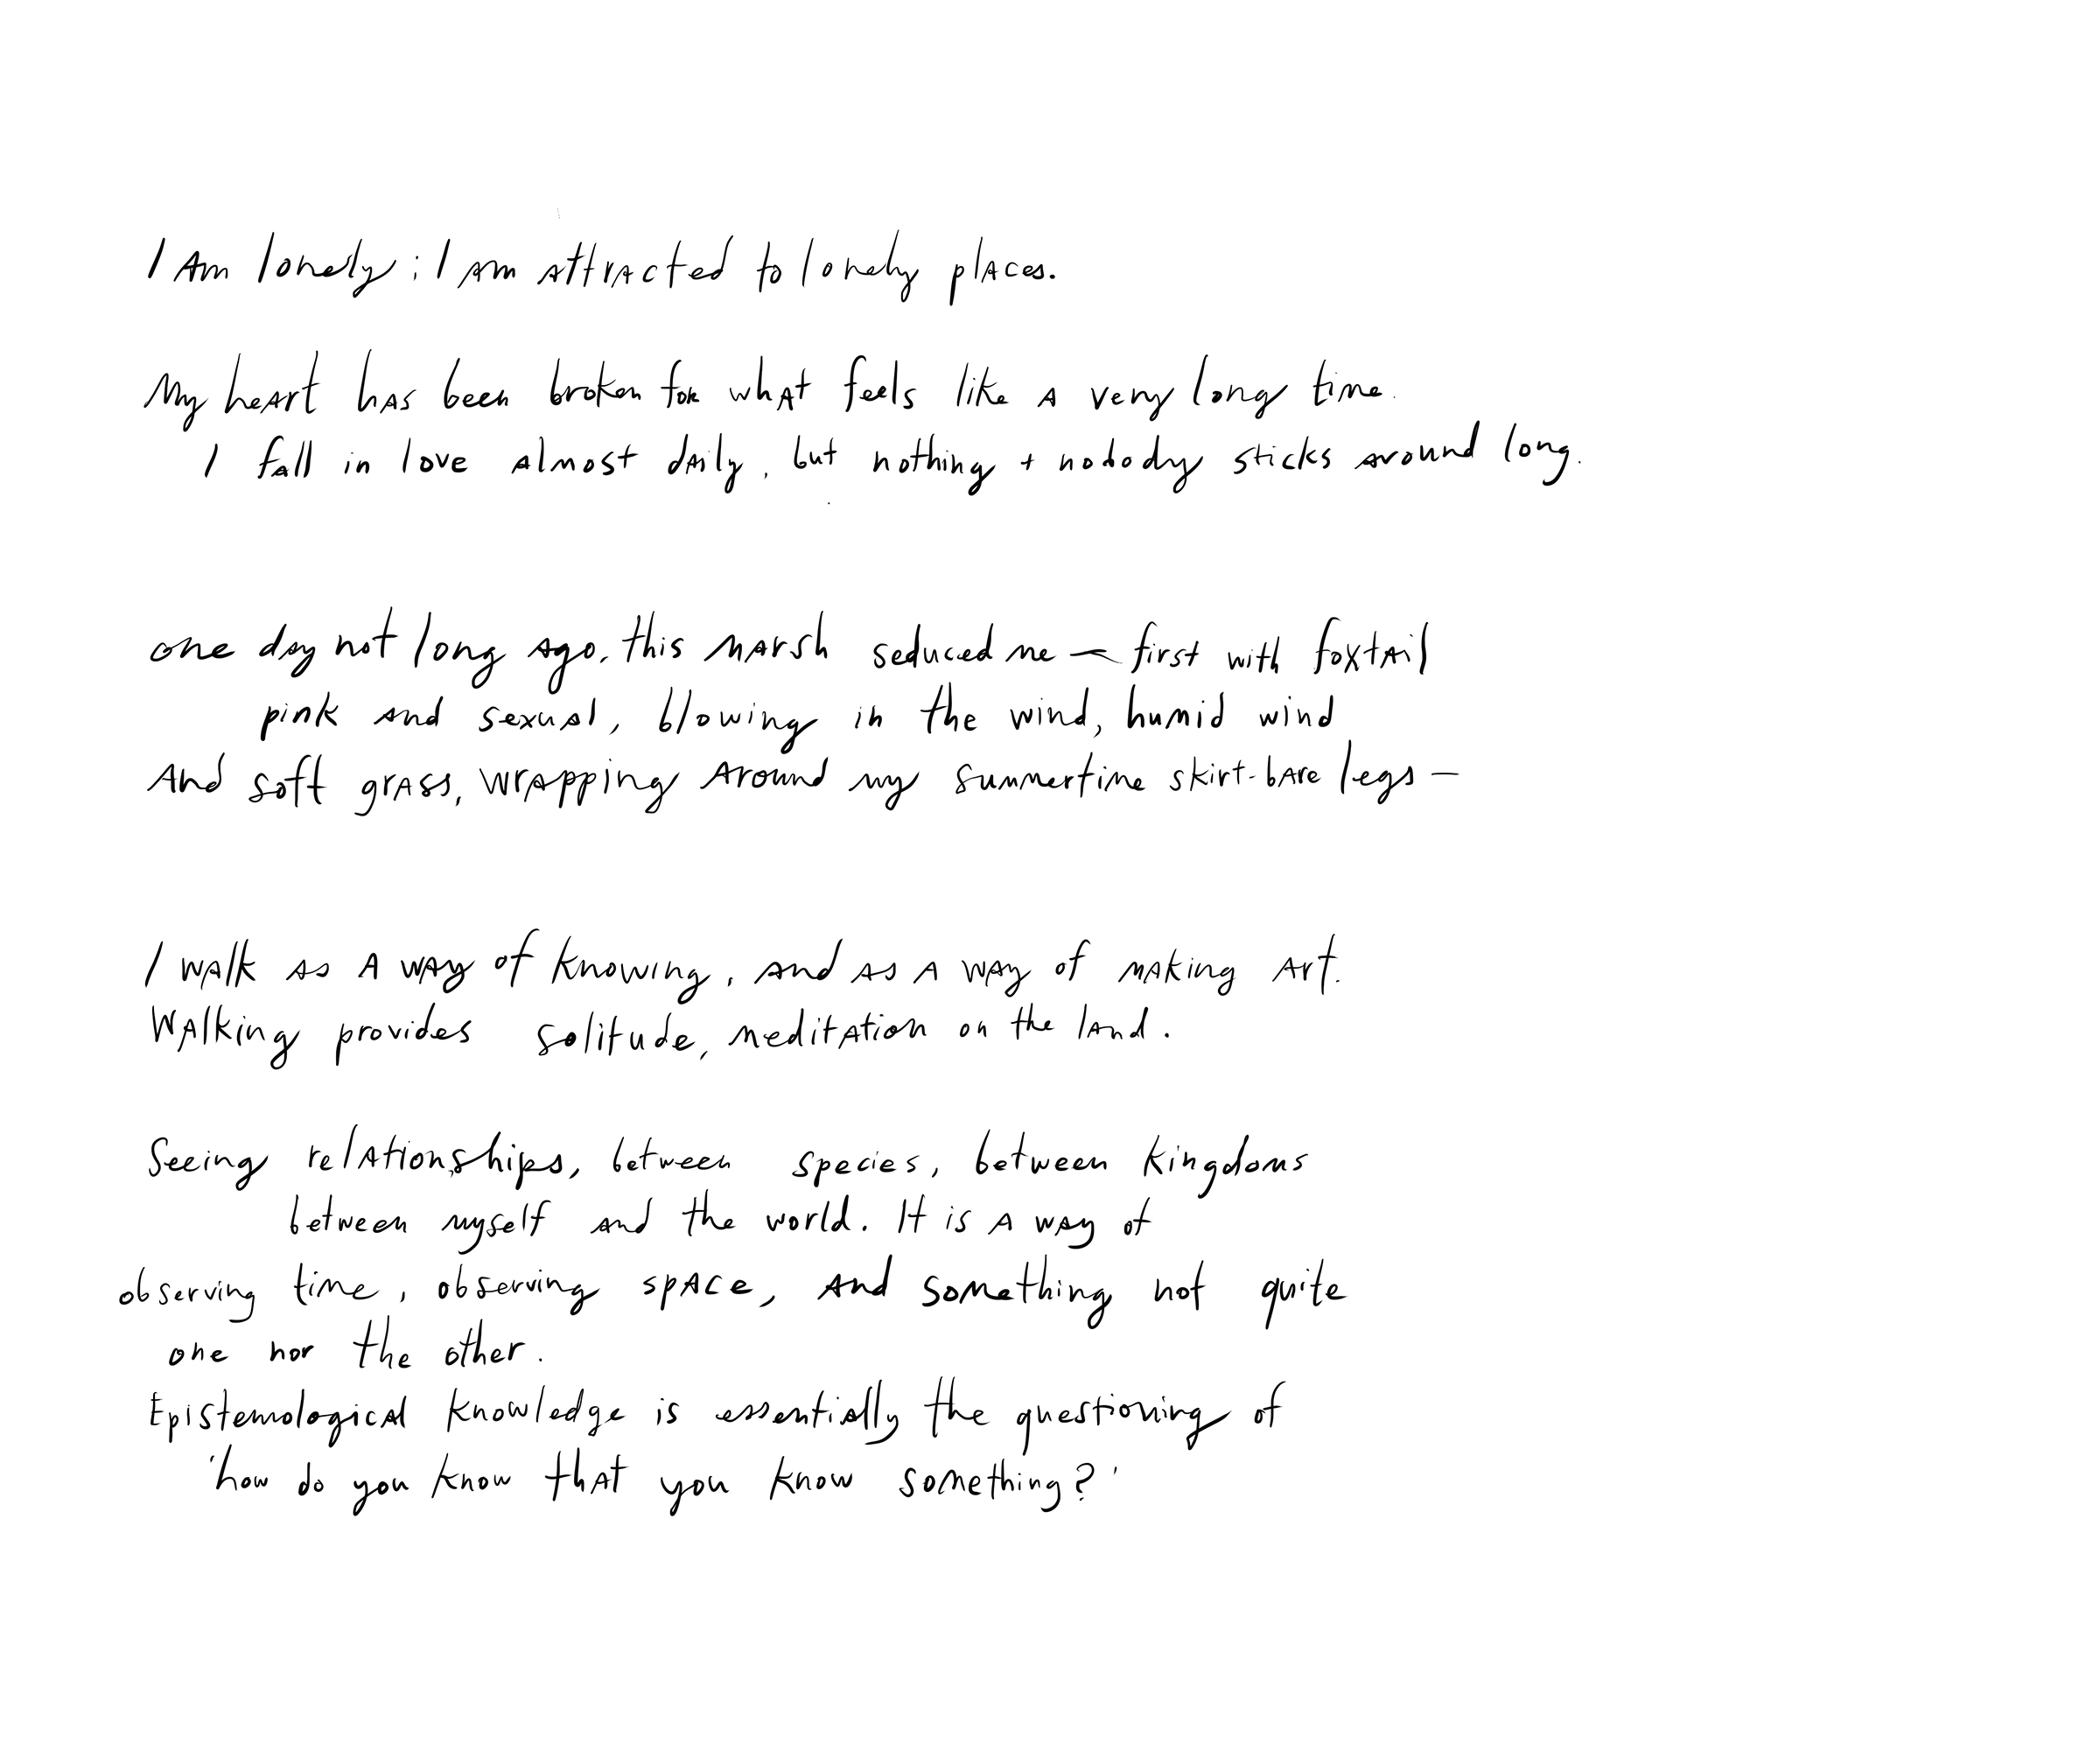 I Am lonely; I am attracted to lonely places.
My heart has been broken for what feels like a very long time.
I fall in love almost daily, but nothing + nobody sticks around long.
one day not long ago, this marsh seduced me — first with foxtail
pink and sexual, blowing in the wind, humid wind
And soft grass, wrapping around my summertime skirt-bare legs —
I walk as a way of knowing, and as a way of making art.
Walking provides solitude, meditation on the land.
Seeing relationships, between species, between kingdoms
between myself and the world. It is a way of
observing time, observing space, and something not quite
one nor the other.
Epistemological knowledge is essentially the questioning of
'how do you know that you know something?'